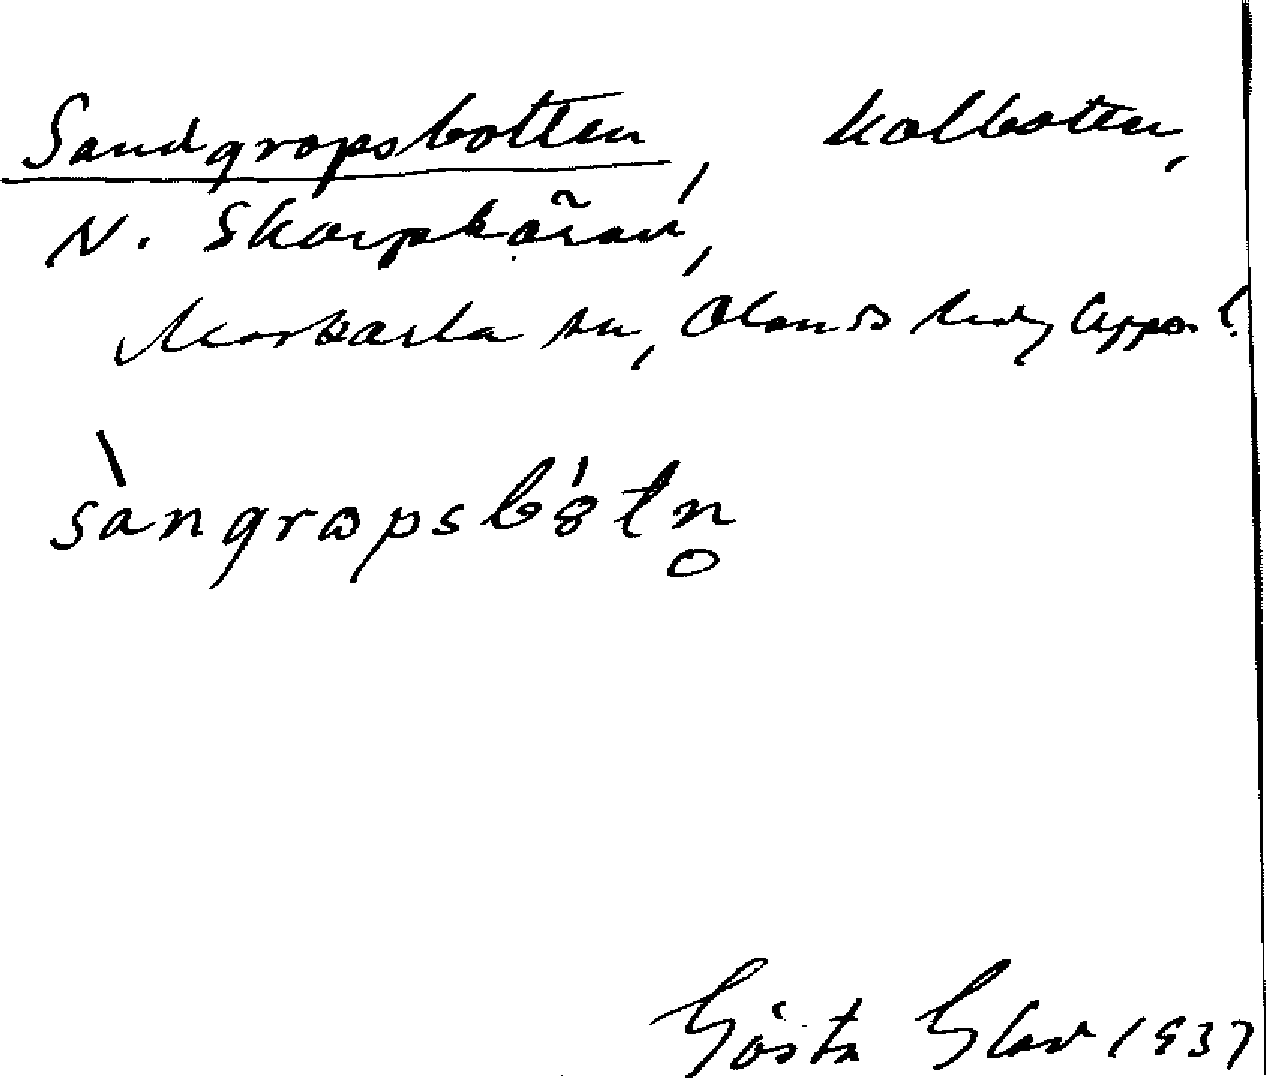 Sandgropsbotten, kolbotten,
N. Skarpkärret,
Morkarla sn, Olands hd, Uppsl.
sàngrapsbótn̥
Gösta Glav 1937